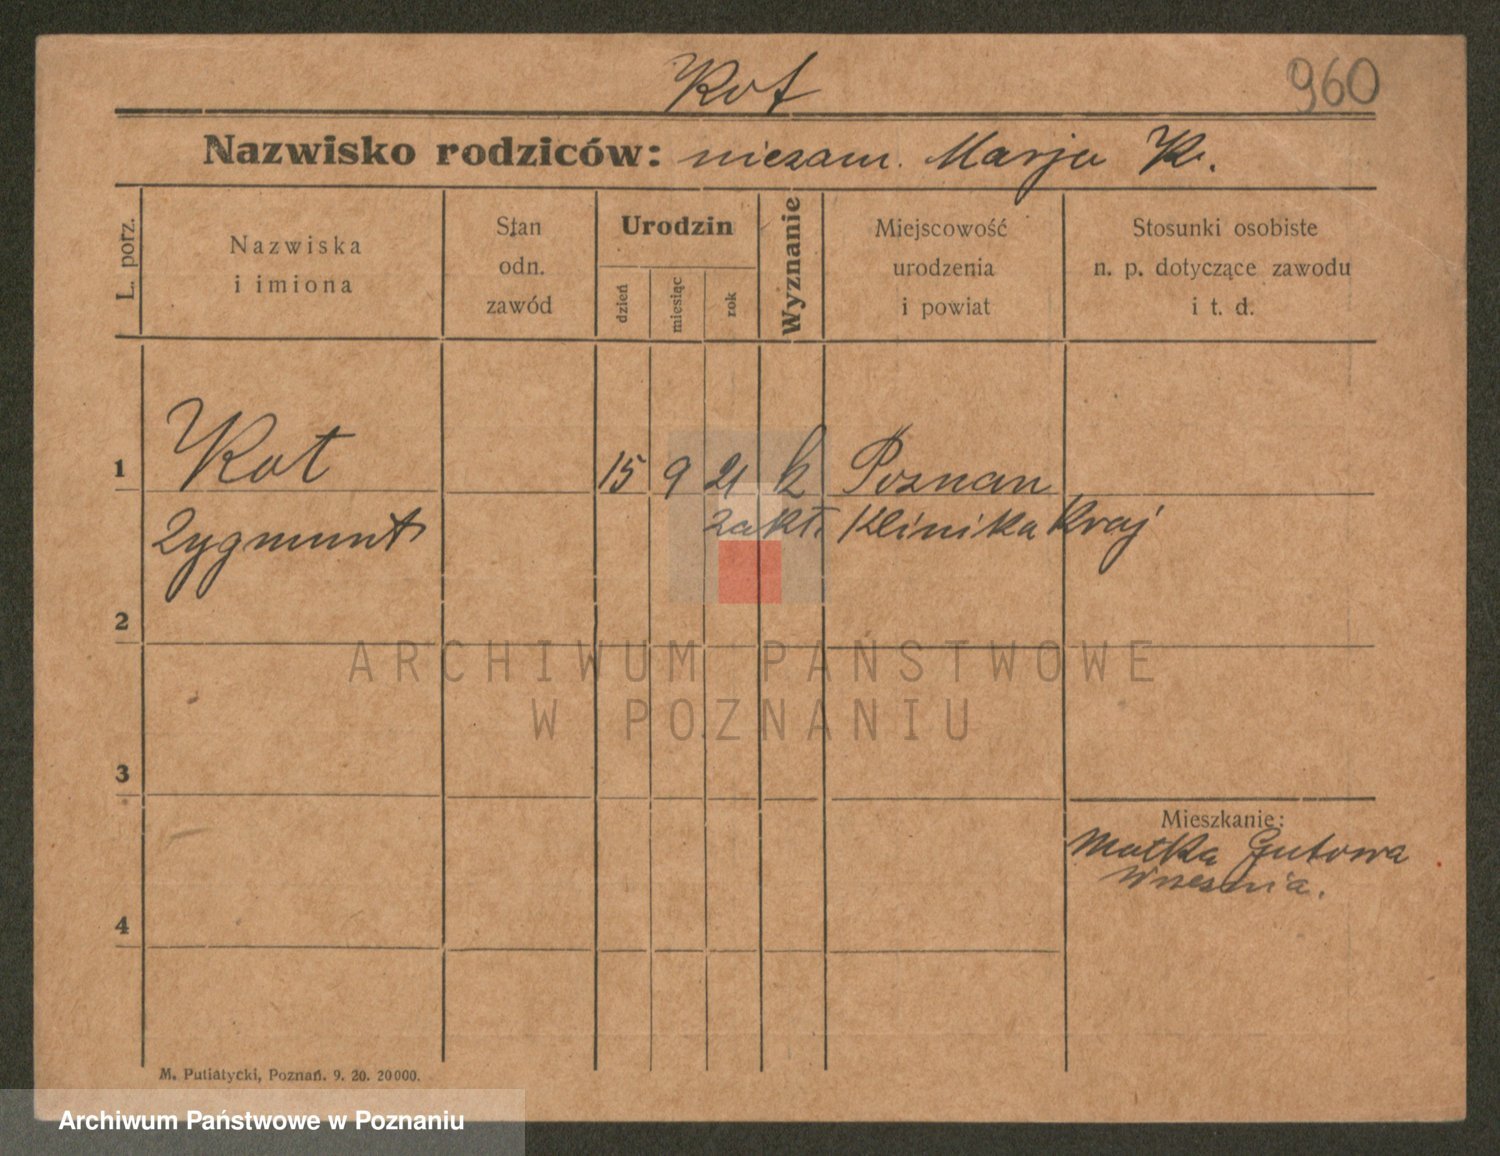 Kot
960
Nazwisko rodziców: niezam. Marja K.
L. porz.
Nazwiska
i imiona
Stan
odn.
zawód
Urodzin
dzień
miesiąc
rok
Wyznanie
Miejscowość
urodzenia
i powiat
Stosunki osobiste
n. p. dotyczące zawodu
i t. d.
1 Kot 15 9 21 k Poznan
Zygmunt zakł. Klinika Kraj
2
ARCHIWUM PAŃSTWOWE
W POZNANIU
3
Mieszkanie:
Matka Gutowa
Wrzesnia.
4
M. Putiatycki, Poznań. 9. 20. 20000.
Archiwum Państwowe w Poznaniu